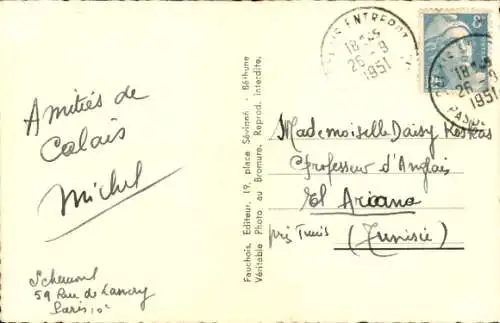 Amitiés de
Calais
Michel
59 Rue de Lancry
Paris 10
Fauchois, Editeur, 19, place Sévigné - Béthune
Véritable Photo au Bromure. Reprod. interdite.
ENTREPOT
18 45
25 - 9
1951
8F
18 45
1951
Mademoiselle Daisy
Professeur d'Anglais
El Ariana
près Tunis (Tunisie)